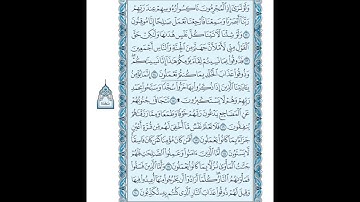 وَلَوْ تَرَىٰ إِذِ الْمُجْرِمُونَ نَاكِسُوا رُءُوسِهِمْ عِندَ رَبِّهِمْ
رَبَّنَا أَبْصَرْنَا وَسَمِعْنَا فَارْجِعْنَا نَعْمَلْ صَالِحًا إِنَّا مُوقِنُونَ
وَلَوْ شِئْنَا لَآتَيْنَا كُلَّ نَفْسٍ هُدَاهَا وَلَٰكِنْ حَقَّ
الْقَوْلُ مِنِّي لَأَمْلَأَنَّ جَهَنَّمَ مِنَ الْجِنَّةِ وَالنَّاسِ أَجْمَعِينَ
فَذُوقُوا بِمَا نَسِيتُمْ لِقَاءَ يَوْمِكُمْ هَٰذَا إِنَّا نَسِينَاكُمْ
وَذُوقُوا عَذَابَ الْخُلْدِ بِمَا كُنتُمْ تَعْمَلُونَ إِنَّمَا يُؤْمِنُ
بِآيَاتِنَا الَّذِينَ إِذَا ذُكِّرُوا بِهَا خَرُّوا سُجَّدًا وَسَبَّحُوا بِحَمْدِ
رَبِّهِمْ وَهُمْ لَا يَسْتَكْبِرُونَ ۩ تَتَجَافَىٰ جُنُوبُهُمْ
عَنِ الْمَضَاجِعِ يَدْعُونَ رَبَّهُمْ خَوْفًا وَطَمَعًا وَمِمَّا رَزَقْنَاهُمْ
يُنفِقُونَ فَلَا تَعْلَمُ نَفْسٌ مَّا أُخْفِيَ لَهُم مِّن قُرَّةِ أَعْيُنٍ
جَزَاءً بِمَا كَانُوا يَعْمَلُونَ أَفَمَن كَانَ مُؤْمِنًا كَمَن كَانَ فَاسِقًا
لَّا يَسْتَوُونَ أَمَّا الَّذِينَ آمَنُوا وَعَمِلُوا الصَّالِحَاتِ فَلَهُمْ
جَنَّاتُ الْمَأْوَىٰ نُزُلًا بِمَا كَانُوا يَعْمَلُونَ وَأَمَّا الَّذِينَ فَسَقُوا
فَمَأْوَاهُمُ النَّارُ كُلَّمَا أَرَادُوا أَن يَخْرُجُوا مِنْهَا أُعِيدُوا فِيهَا
وَقِيلَ لَهُمْ ذُوقُوا عَذَابَ النَّارِ الَّذِي كُنتُم بِهِ تُكَذِّبُونَ